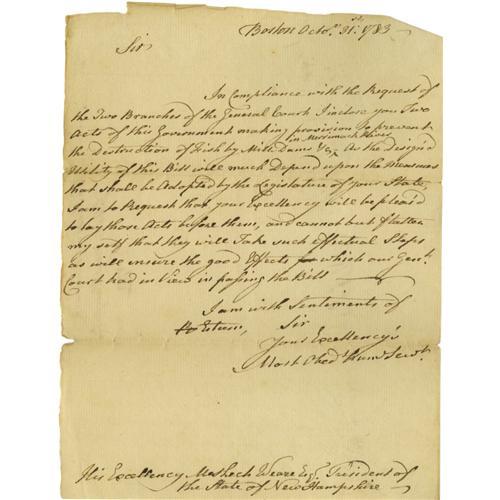 Boston Octor. 31st. 1783
Sir
In Compliance with the Request of
the Two Branches of the General Court I inclose you Two
Acts of this Government making provision to prevent
in Merrimack River
the Destruction of Fish by Mill Dams &c. As the design'd
Utility of this Bill will much Depend upon the Measures
that shall be Adopted by the Legislature of your State,
I am to Request that your Excellency will be pleas'd
to lay those Acts before them, and cannot but flatter
my self that they will Take such Effectual Steps
as will insure the good Effects which our Genl.
Court had in View in passing the Bill
I am with Sentiments of
Esteem, Sir
Your Excellency's
Most Obedt. Humle. Servt.
His Excellency Meshech Weare Esqr. President of
the State of New Hampshire